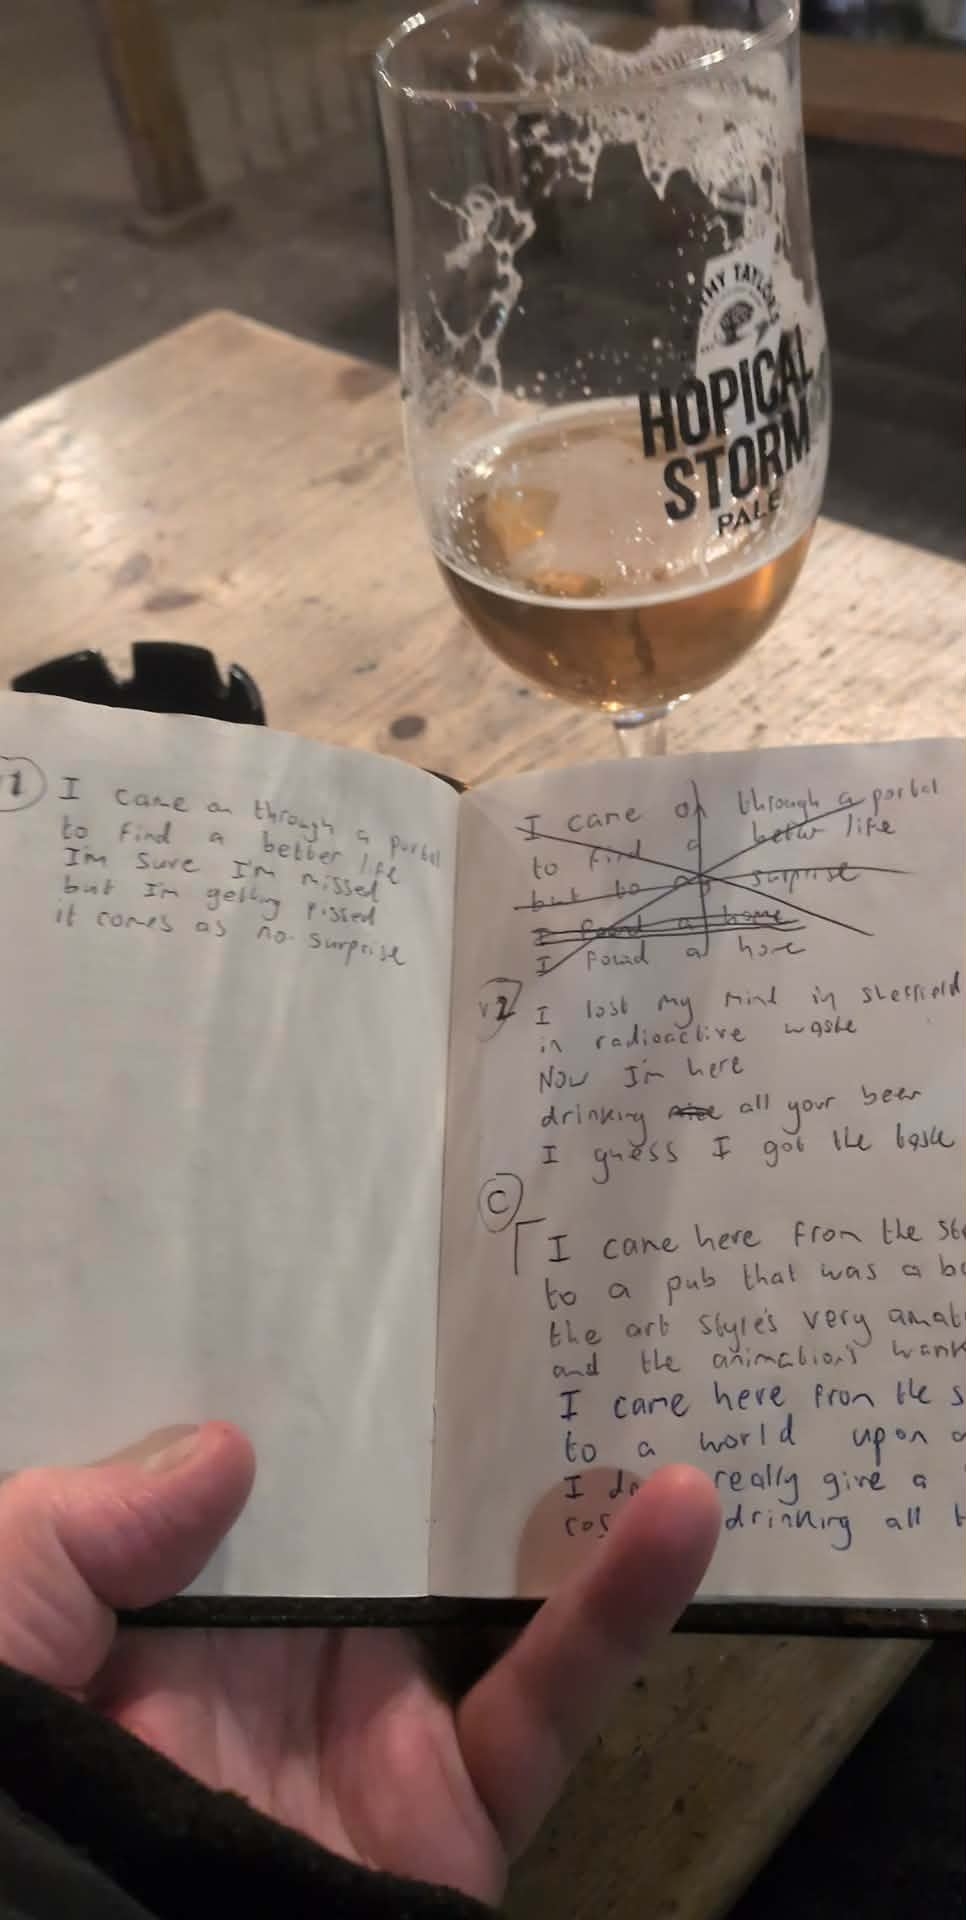 THY TAYLOR'S
HOPICAL
STORM
PALE
1
I came on through a portal
to find a better life
I'm sure I'm missed
but I'm getting pissed
it comes as no surprise
I came on through a portal
to find a better life
but to surprise
I found a home
I found a home
V2
I lost my mind in sheffield
in radioactive waste
Now I'm here
drinking all your beer
I guess I got the taste
C
I came here from the
to a pub that was a
the art style's very
and the animation's
I came here from the
to a world upon
I really give a
drinking all